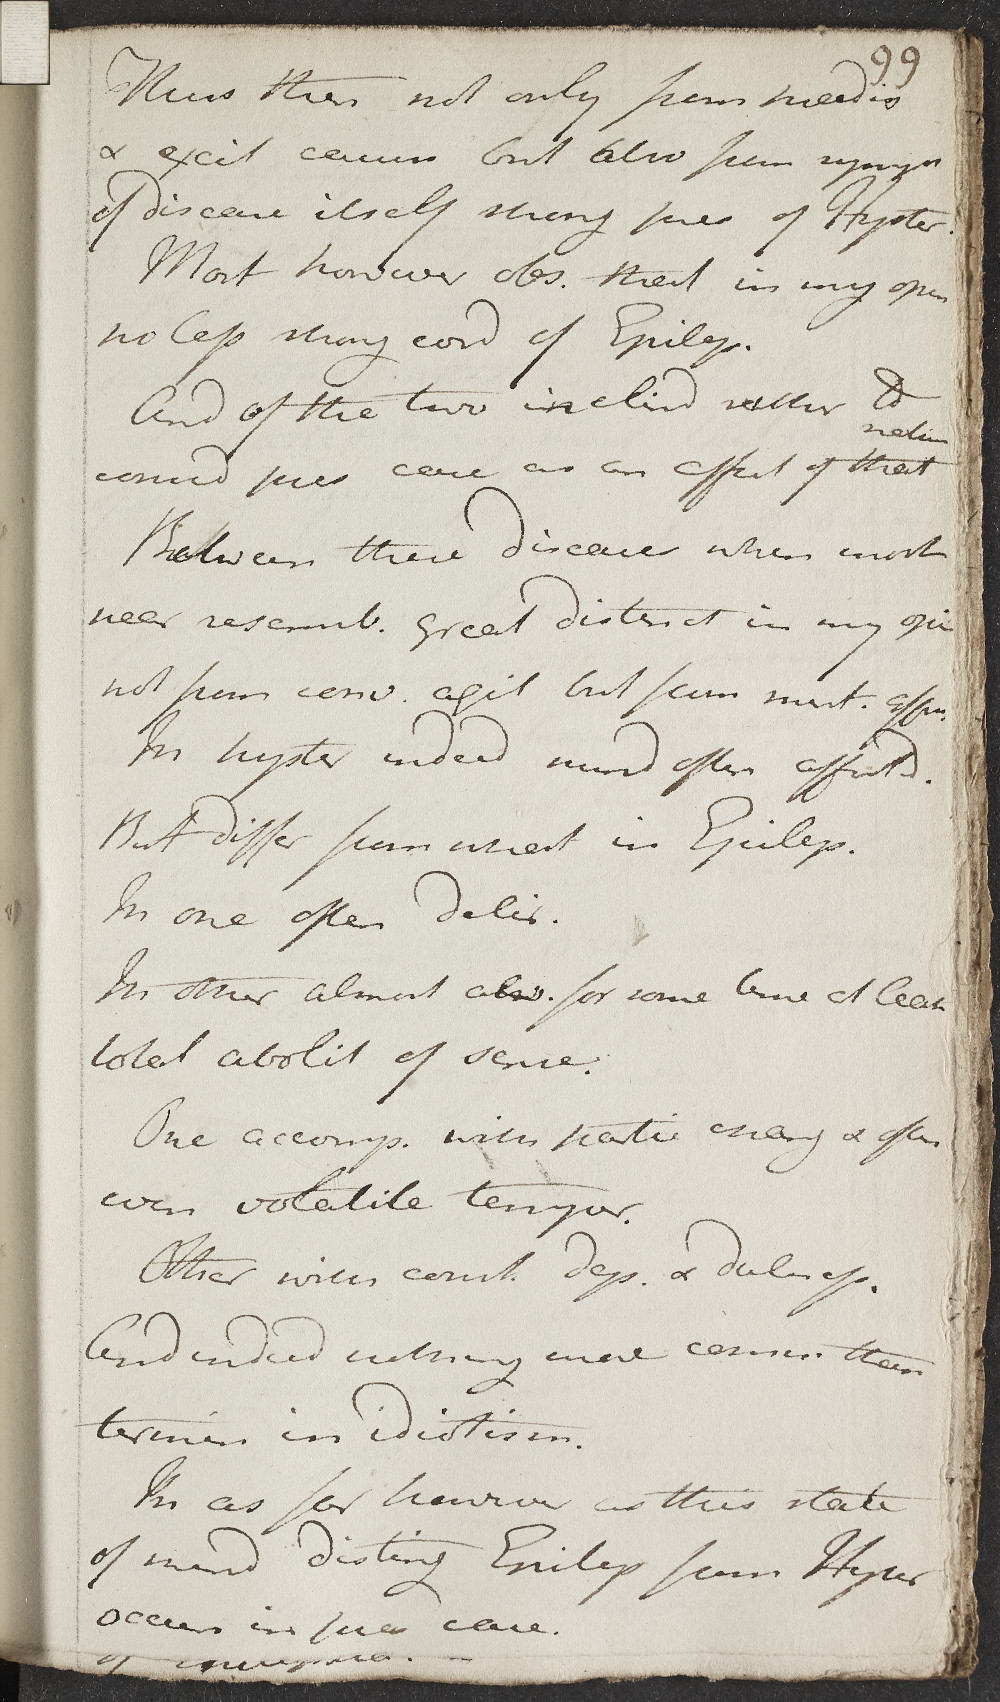 99
Thus then not only from predis
& excit causes but also from sympt
of disease itself strong pres of Hyster.
Most however obs. that in my opin
no less strong cord of Epilep.
And of the two inclind rather to
consid pres case as an effect of that
Between these diseases when most
near resemb. great distinct in my opi
not from conv. agit but from ment. affec.
In hyster indeed mind often affectd.
But differ from what in Epilep.
In one often Delir.
In other almost alw. for some time at least
total abolit of sense.
One accomp. with partic energ & often
even volatile temper.
Other with const. dep. & dulness.
And indeed nothing more common than
termin in idiotism.
In as far however as this state
of mind disting Epilep from Hyster
occurs in pres case.